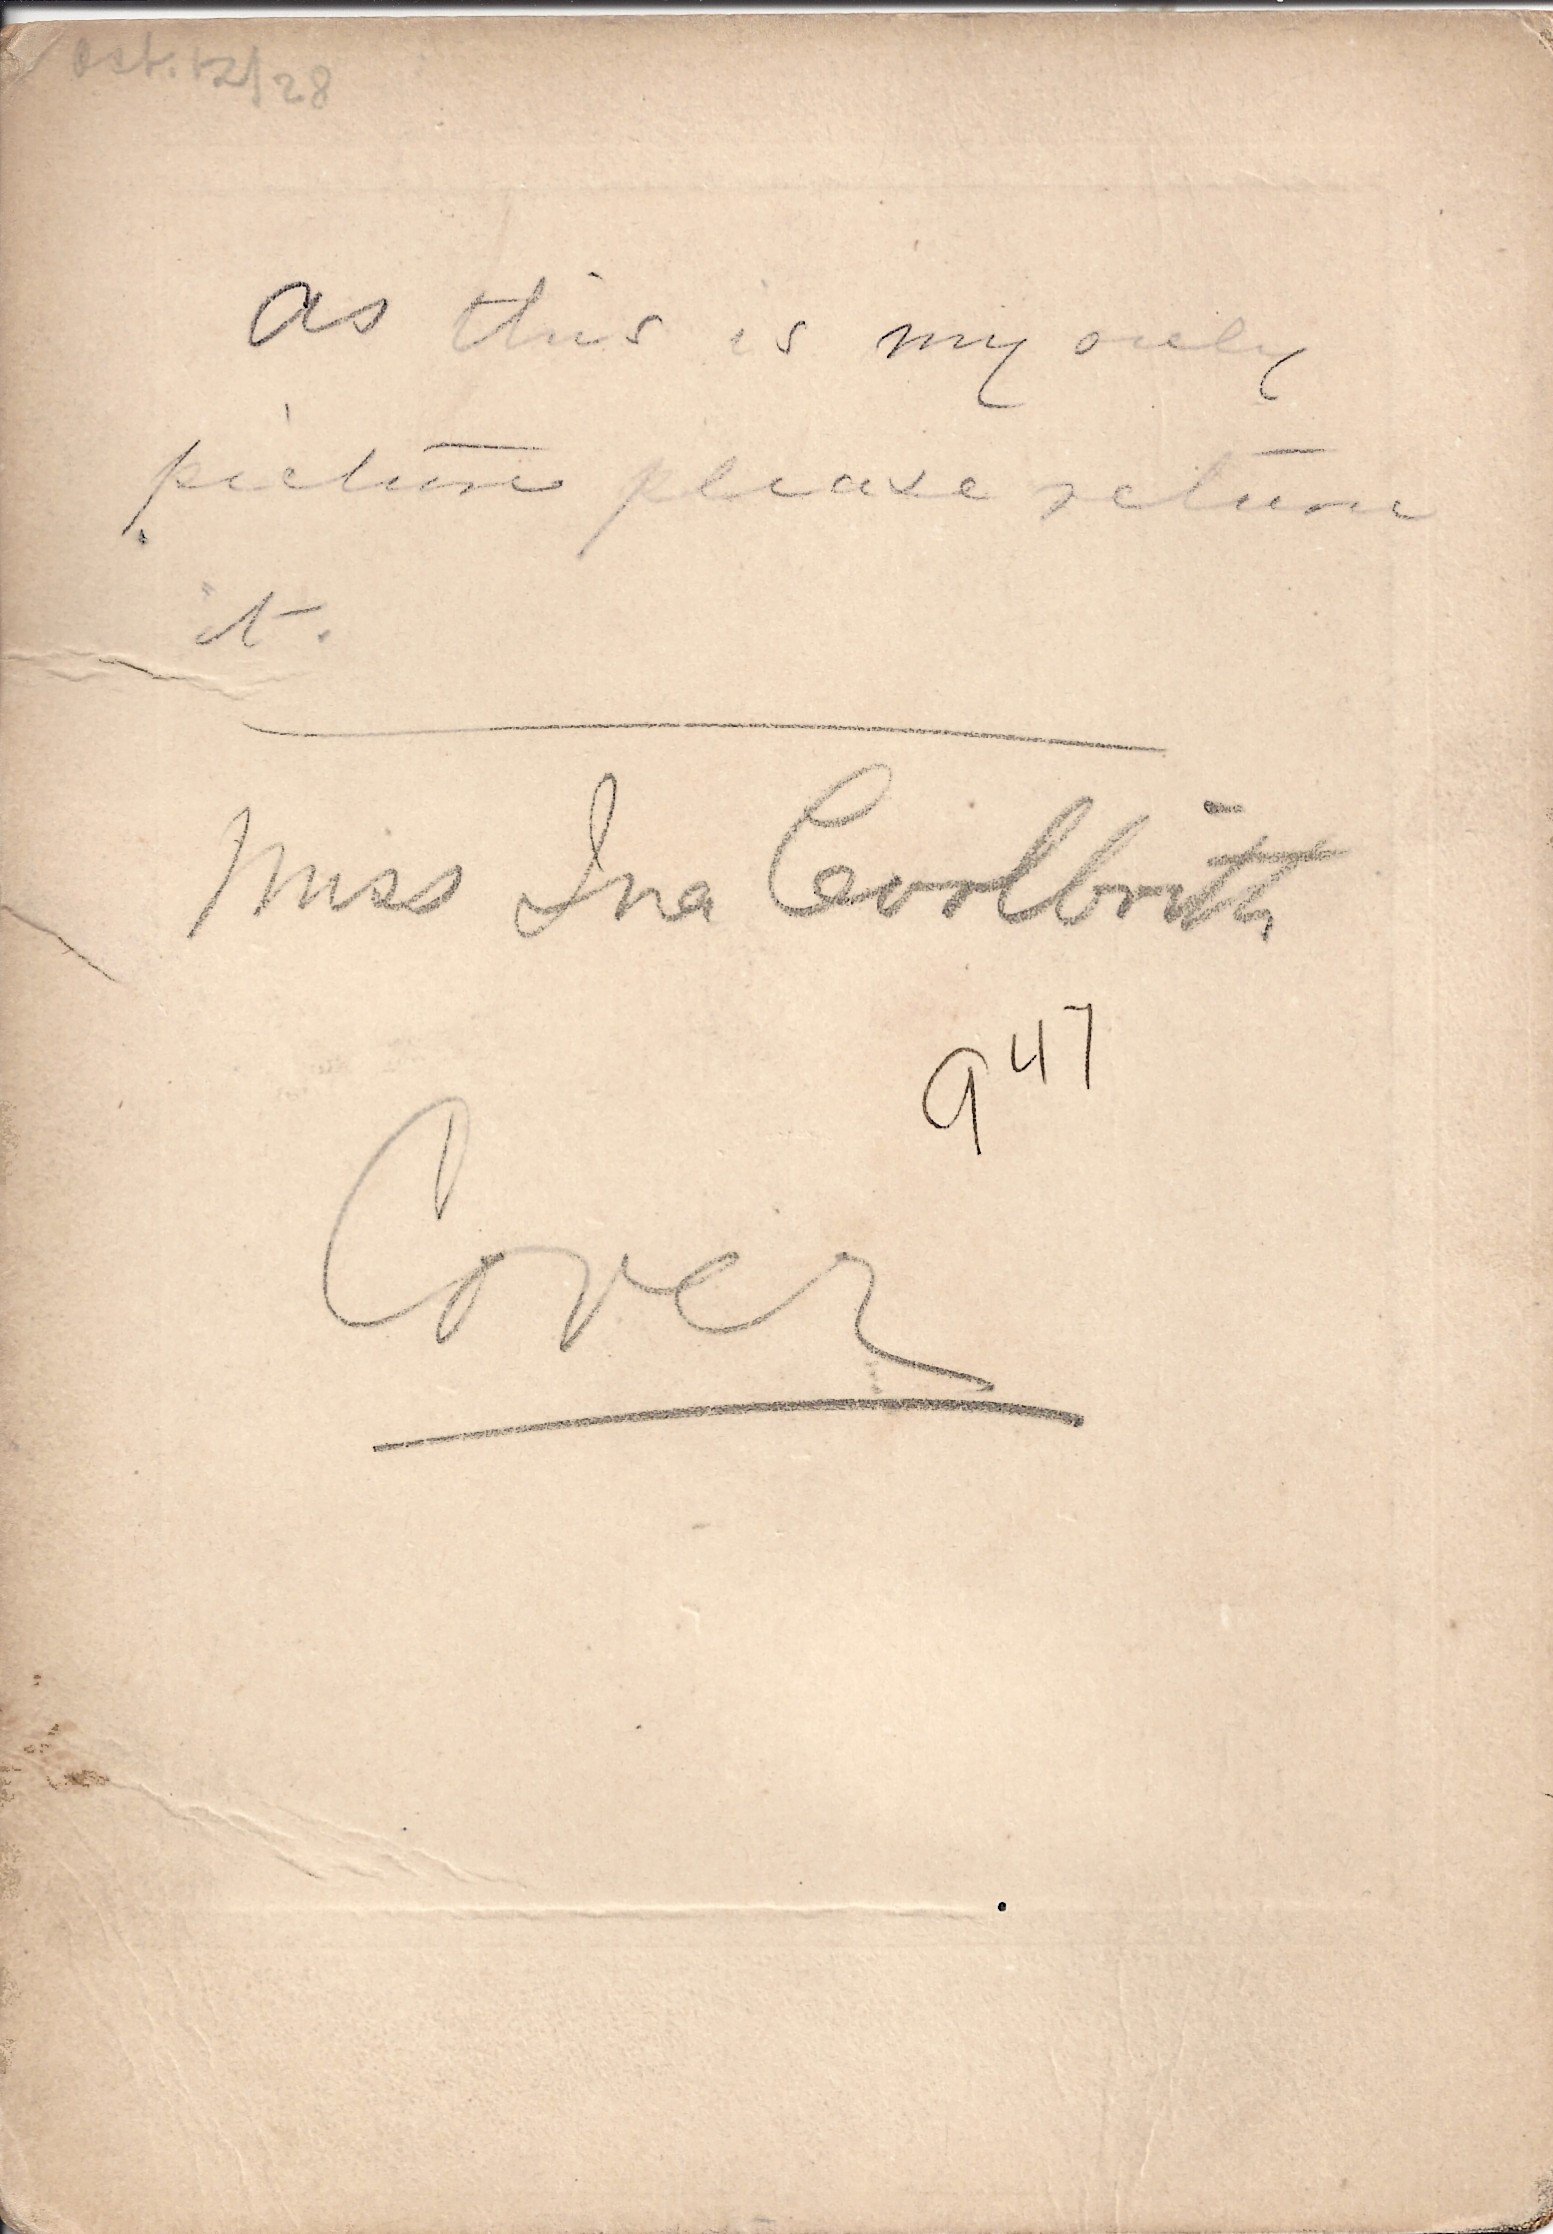 Oct. 12/28
as this is my only
picture please return
it.
Miss Ina Coolbrith
947
Cover